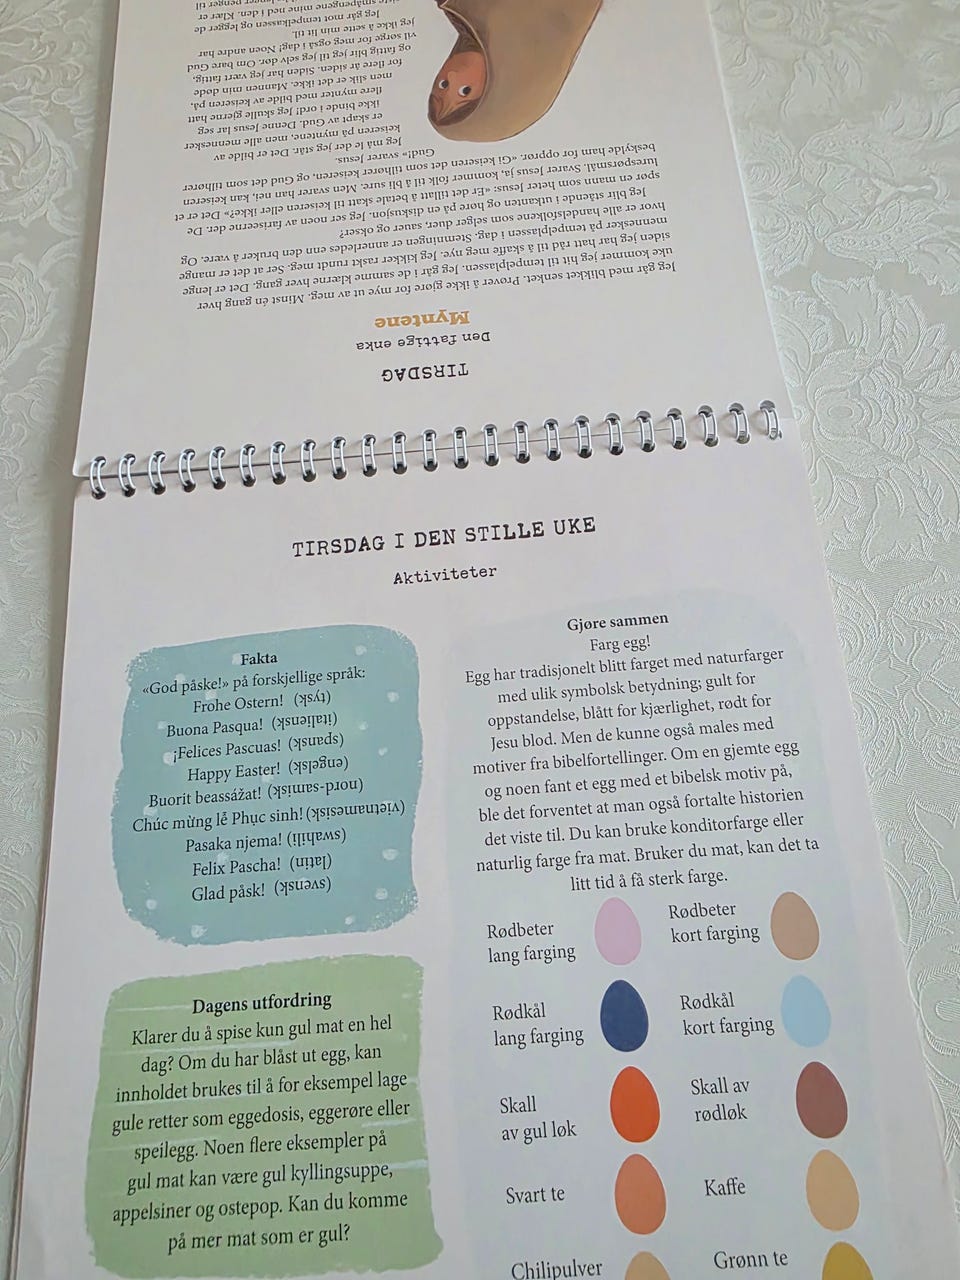 TIRSDAG
Den fattige enka
Myntene
Jeg går med blikket senket. Prøver å ikke gjøre for mye ut av meg. Minst én gang hver
uke kommer jeg hit til tempelplassen. Jeg går i de samme klærne hver gang. Det er lenge
siden jeg har hatt råd til å skaffe meg nye. Jeg kikker raskt rundt meg. Ser at det er mange
mennesker på tempelplassen i dag. Stemningen er annerledes enn den bruker å være. Og
hvor er alle handelsfolkene som selger duer, sauer og okser?
Jeg blir stående i utkanten og høre på en diskusjon. Jeg ser noen av fariseerne der. De
spør en mann som heter Jesus: «Er det tillatt å betale skatt til keiseren eller ikke?» Det er et
lurespørsmål. Svarer Jesus ja, kommer folk til å bli sure. Men svarer han nei, kan keiseren
beskylde ham for opprør. «Gi keiseren det som tilhører keiseren, og Gud det som tilhører
Gud!» svarer Jesus.
Jeg må le der jeg står. Det er bilde av
keiseren på myntene, men alle mennesker
er skapt av Gud. Denne Jesus lar seg
ikke binde i ord! Jeg skulle gjerne hatt
flere mynter med bilde av keiseren på,
men slik er det ikke. Mannen min døde
for flere år siden. Siden har jeg vært fattig,
og fattig blir jeg til jeg selv dør. Om bare Gud
vil sørge for meg også i dag! Noen andre har
jeg ikke å sette min lit til.
Jeg går mot tempelkassen og legger de
siste småpengene mine ned i den. Klær er
lenger penger til
TIRSDAG I DEN STILLE UKE
Aktiviteter
Fakta
«God påske!» på forskjellige språk:
Frohe Ostern! (tysk)
Buona Pasqua! (italiensk)
¡Felices Pascuas! (spansk)
Happy Easter! (engelsk)
Buorit beassážat! (nord-samisk)
Chúc mừng lễ Phục sinh! (vietnamesisk)
Pasaka njema! (swahili)
Felix Pascha! (latin)
Glad påsk! (svensk)
Dagens utfordring
Klarer du å spise kun gul mat en hel
dag? Om du har blåst ut egg, kan
innholdet brukes til å for eksempel lage
gule retter som eggedosis, eggerøre eller
speilegg. Noen flere eksempler på
gul mat kan være gul kyllingsuppe,
appelsiner og ostepop. Kan du komme
på mer mat som er gul?
Gjøre sammen
Farg egg!
Egg har tradisjonelt blitt farget med naturfarger
med ulik symbolsk betydning; gult for
oppstandelse, blått for kjærlighet, rødt for
Jesu blod. Men de kunne også males med
motiver fra bibelfortellinger. Om en gjemte egg
og noen fant et egg med et bibelsk motiv på,
ble det forventet at man også fortalte historien
det viste til. Du kan bruke konditorfarge eller
naturlig farge fra mat. Bruker du mat, kan det ta
litt tid å få sterk farge.
Rødbeter
lang farging
Rødbeter
kort farging
Rødkål
lang farging
Rødkål
kort farging
Skall
av gul løk
Skall av
rødløk
Svart te
Kaffe
Chilipulver
Grønn te